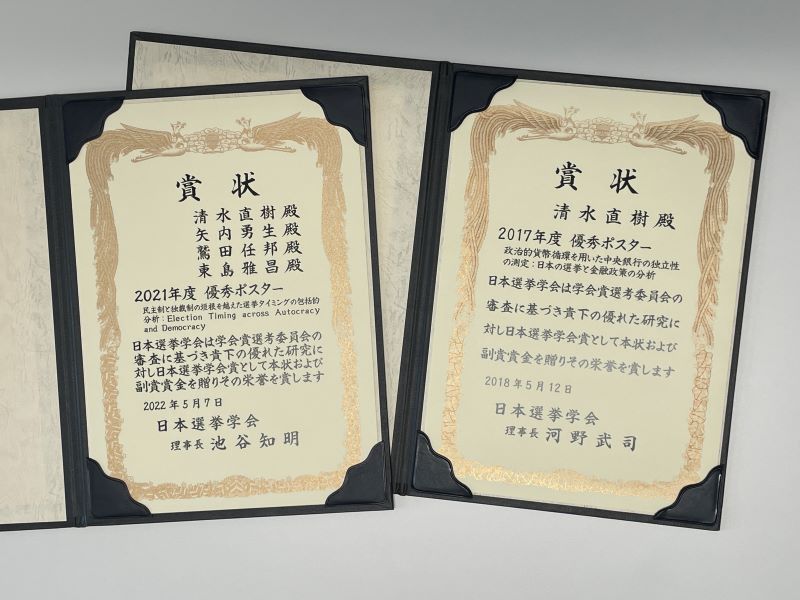 賞状
清水直樹殿
矢内勇生殿
鷲田任邦殿
東島雅昌殿
2021年度 優秀ポスター
民主制と独裁制の垣根を越えた選挙タイミングの包括的
分析：Election Timing across Autocracy
and Democracy
日本選挙学会は学会賞選考委員会の
審査に基づき貴下の優れた研究に
対し日本選挙学会賞として本状および
副賞賞金を贈りその栄誉を賞します
2022年5月7日
日本選挙学会
理事長 池谷知明
賞状
清水直樹殿
2017年度 優秀ポスター
政治的貨幣循環を用いた中央銀行の独立性
の測定：日本の選挙と金融政策の分析
日本選挙学会は学会賞選考委員会の
審査に基づき貴下の優れた研究に
対し日本選挙学会賞として本状および
副賞賞金を贈りその栄誉を賞します
2018年5月12日
日本選挙学会
理事長 河野武司